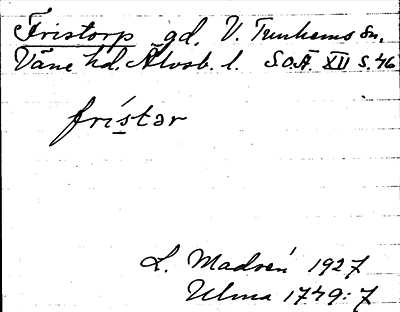 Fristorp gd. V. Tunhems sn.
Väne hd. Älvsb. l. SOÄ XII s. 46
frístər
L. Madsén 1927
Ulma 1749:7